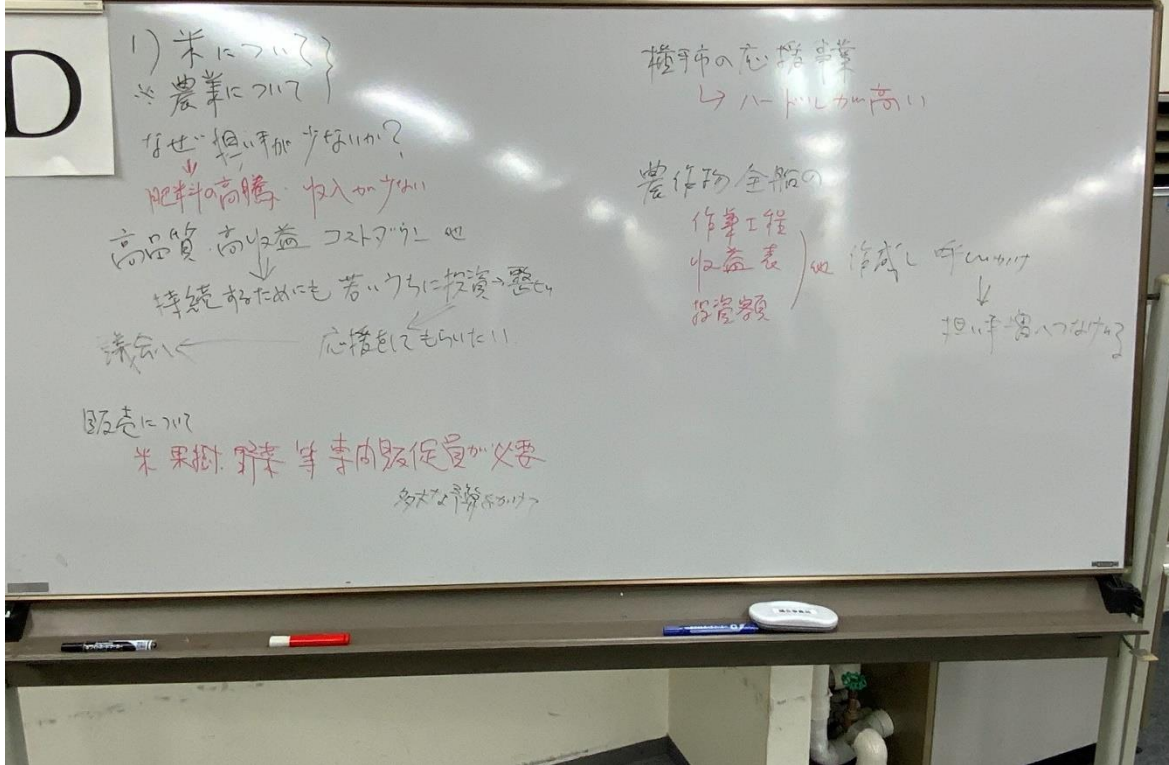 D
1) 米について
※ 農業について
なぜ担い手が少ないか?
↓
肥料の高騰・収入が少ない
高品質・高収益 コストダウン 他
↓
持続するためにも若いうちに投資→
応援をしてもらいたい
議会へ ←
販売について
米 果樹 野菜 等 専門販促員が必要
多大な予算をかけて
横手市の応援事業
↳ ハードルが高い
農作物全般の
作業工程
収益表
投資額
他 作成し 呼びかけ
↓
担い手増へつなげる